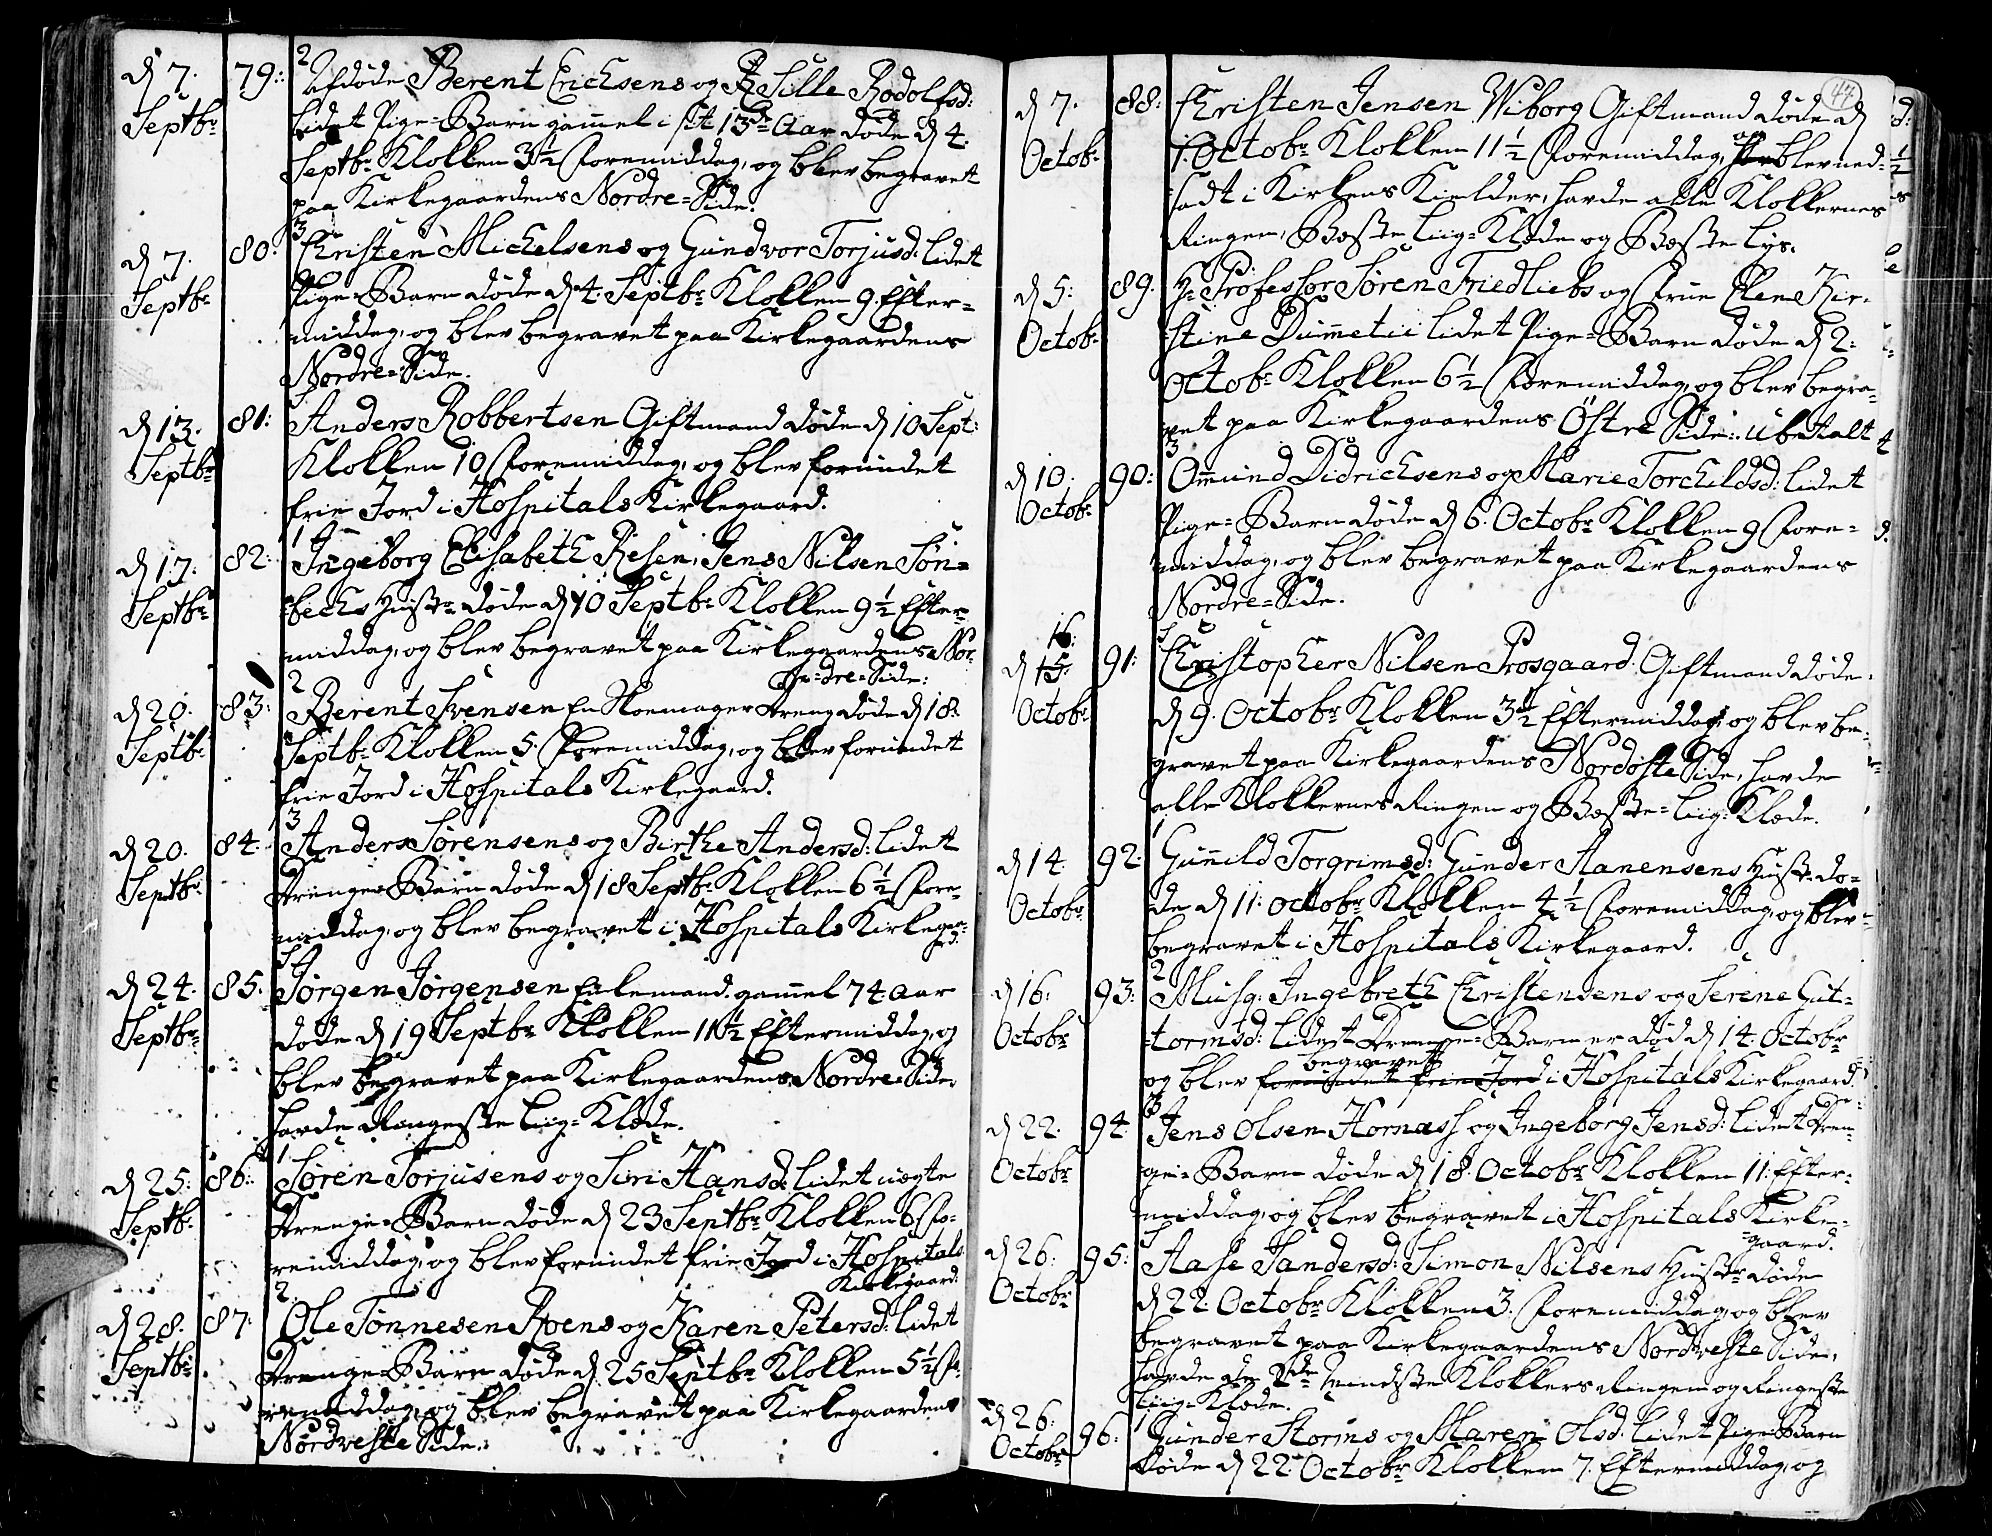 d 7. Septbr 79: 2 Afdøde Berent Erichsens og Sille Rodolfsd:
lidet Pige-Barn gamel i sit 13de Aar døde d 4.
Septbr Klokken 3½ Foremiddag, og blev begravet
paa Kirkegaardens Nordre-Side.
d 7. Septbr 80: 3 Christen Michelsens og Gundvor Torjusd: lidet
Pige-Barn døde d 4. Septbr Klokken 9. Efter-
middag, og blev begravet paa Kirkegaardens
Nordre-Side.
d 13. Septbr 81: Anders Robbertsen Giftmand døde d 10 Sept:
Klokken 10 Foremiddag, og blev forundet
frie Jord i Hospitals Kirkegaard.
d 17. Septbr 82: 1 Ingeborg Elisabeth Resen, Jens Nilsen Søn-
bechs Hustr døde d 10 Septbr Klokken 9½ Efter
middag, og blev begravet paa Kirkegaardens Nor-
-dre-Side:
d 20. Septbr 83: 2 Berent Svensen En Skoemager Dreng døde d 18.
Septbr Klokken 5. Foremiddag, og blev forundet
frie Jord i Hospitals Kirkegaard.
d 20. Septbr 84. 3 Anders Sørensens og Birthe Andersd: lidet
Drenge-Barn døde d 18 Septbr Klokken 6½ Fore-
middag, og blev begravet i Hospitals Kirkegaar-
d.
d 24. Septbr 85: Jørgen Jørgensen Enkemand gamel 74 Aar
døde d 19 Septbr Klokken 11½ Eftermiddag, og
blev begravet paa Kirkegaardens Nordre-Side,
havde Ringeste Liig-Klæde.
d 25: Septbr 86: 1 Søren Torjusens og Siri Hansd: lidet uægte
Drenge-Barn døde d 23 Septbr Klokken 6 Fo-
remiddag, og blev forundet frie Jord i Hospitals
Kirkegaard:
d 28. Septbr 87: 2. Ole Tønnesen Roens og Karen Petersd: lidet
Drenge-Barn døde d 25 Septbr Klokken 5½ Fo-
remiddag, og blev begravet paa Kirkegaardens
Nordveste Side.
47
d 7. Octobr 88: Christen Jensen Wiborg Giftmand døde d
1. Octobr Klokken 11½ Foremiddag, og blev ned-
sadt i Kirkens Kielder, havde alle Klokkernes
Ringen, Beste Liig-Klæde og Beste Lys.
d 5: Octobr 89. Hr Professor Søren Friedliebs og Frue Elen Kir-
stine Dumetii lidet Pige-Barn døde d 2:
Octobr Klokken 6½ Foremiddag, og blev begra-
vet paa Kirkegaardens Østre Side: ubetalt
d 10. Octobr 90: 3 Omund Didrichsens og Marie Torchildsd: lidet
Pige-Barn døde d 6. Octobr Klokken 9 Fore-
middag, og blev begravet paa Kirkegaardens
Nordre-Side.
16:
d 15. Octobr 91: Christopher Nilsen Prosgaard Giftmand døde
d 9. Octobr Klokken 3½ Eftermiddag, og blev be-
gravet paa Kirkegaardens Nordøste Side, havde
alle Klokkernes Ringen og Beste-Liig-Klæde.
d 14. Octobr 92: 1 Gunild Torgrimsd: Gunder Aanensens Hustr dø-
de d 11: Octobr Klokken 4½ Foremiddag, og blev
begravet i Hospitals Kirkegaard.
d 16: Octobr 93: 2 Musq: Ingebreth Christensens og Serene Gut-
tormsd: lidet Drenge-Barn er død d 14. Octobr
begravet
og blev forundet frie Jord i Hospitals Kirkegaard.
d 22. Octobr 94: 3 Jens Olsen Hornæss og Ingeborg Jensd: lidet Dren-
ge-Barn døde d 18. Octobr Klokken 11: Efter-
middag, og blev begravet i Hospitals Kirke-
-gaard.
d 26: Octobr 95: Aase Sandersd: Simon Nilsens Hustr døde
d 22. Octobr Klokken 3. Foremiddag, og blev
begravet paa Kirkegaardens Nordveste Side,
havde de 2de Mindste Klokkers Ringen og Ringeste
Liig-Klæde.
d 26: Octobr 96: 1 Gunder Storms og Maren Olsd: lidet Pige-Barn
døde d 22. Octobr Klokken 7. Eftermiddag, og